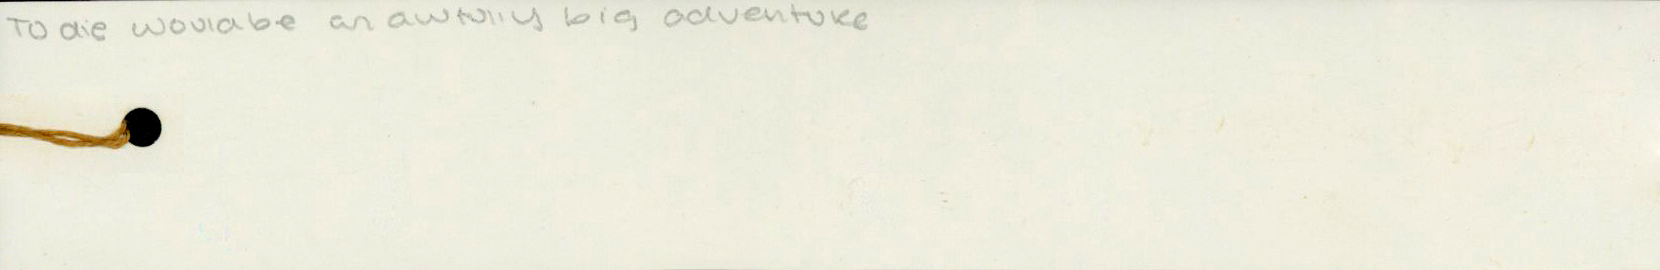 To die would be an awfully big adventure